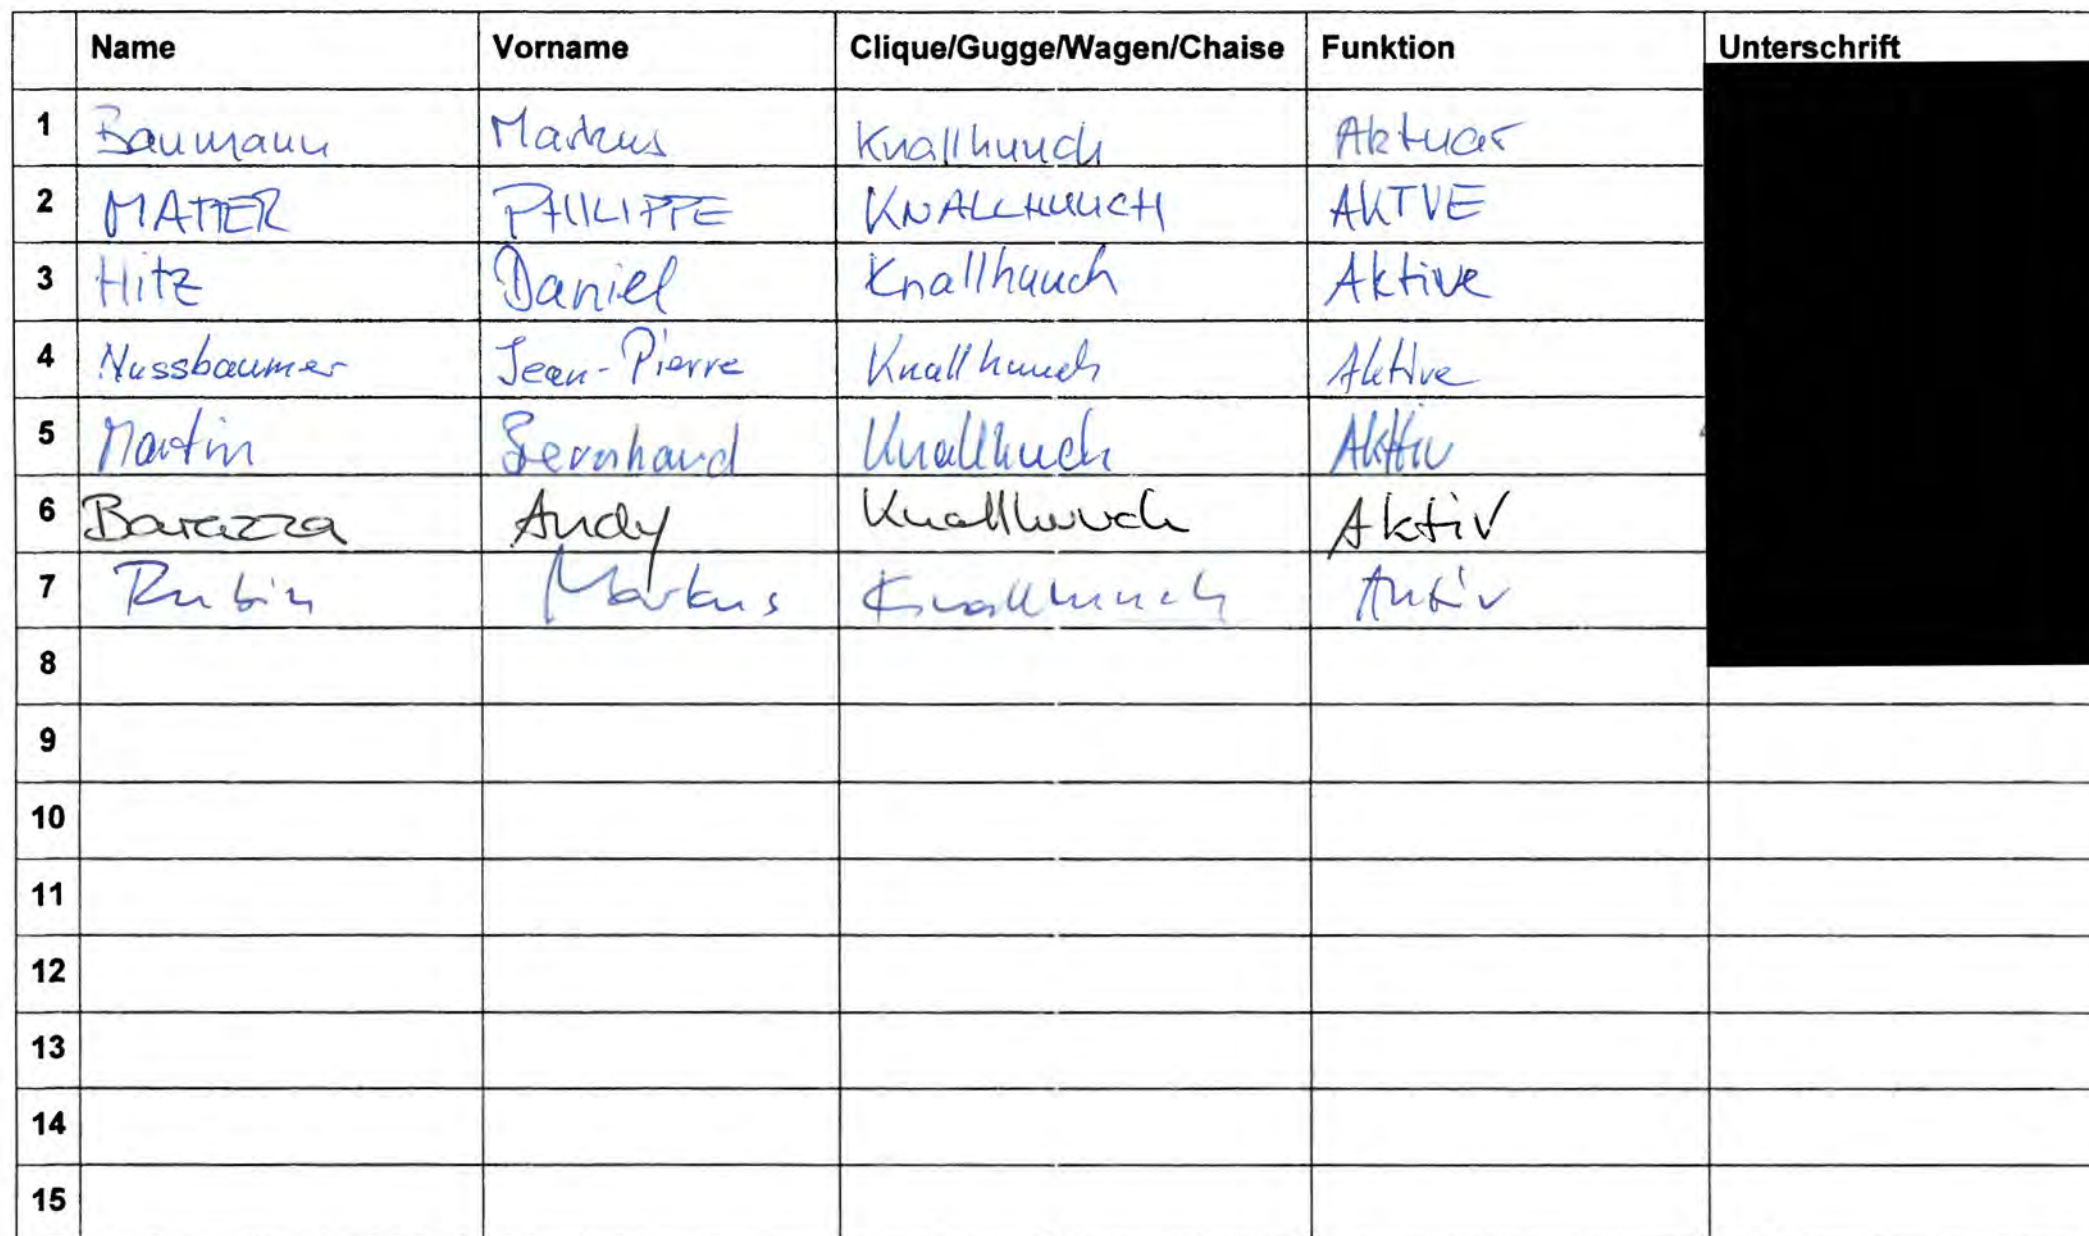 Name Vorname Clique/Gugge/Wagen/Chaise Funktion Unterschrift
1 Baumann Markus Knallhuuch Aktuar
2 MATTER PHILIPPE KNALLHUUCH AKTVE
3 Hitz Daniel Knallhuuch Aktive
4 Nussbaumer Jean-Pierre Knallhuuch Aktive
5 Martin Bernhard Knallhuch Aktiv
6 Barazza Andy Knallhuuch Aktiv
7 Rubin Markus Knallhuuch Aktiv
8
9
10
11
12
13
14
15